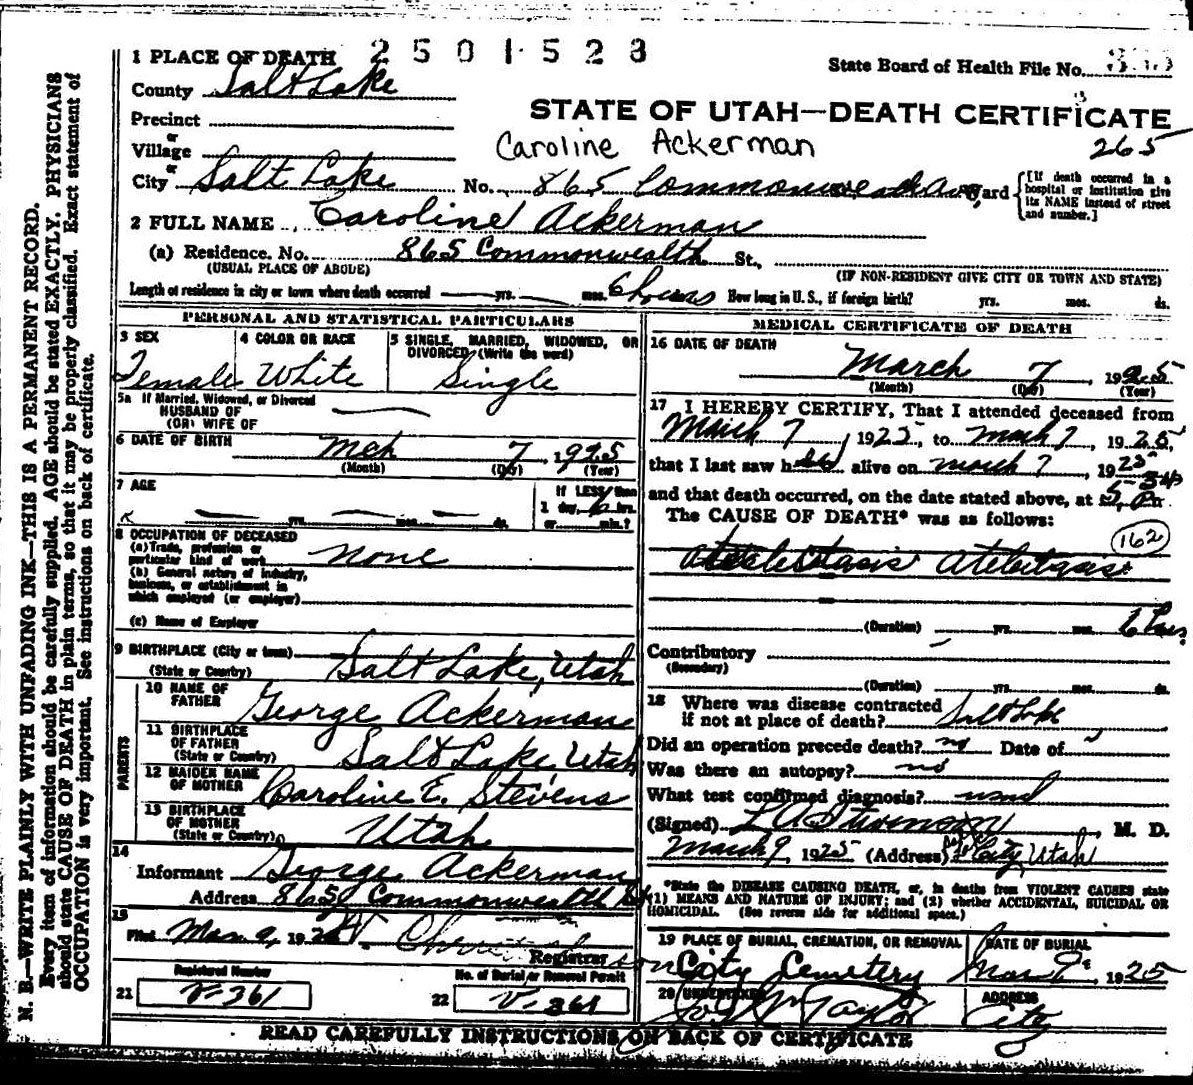 1 PLACE OF DEATH 2501528
State Board of Health File No.
County Salt Lake
STATE OF UTAH—DEATH CERTIFICATE
Precinct
or
Village
Caroline Ackerman 265
or
City Salt Lake No. 865 Commonwealth Ave, Ward
[If death occurred in a hospital or institution give its NAME instead of street and number.]
2 FULL NAME Caroline Ackerman
(a) Residence. No. 865 Commonwealth St.,
(USUAL PLACE OF ABODE) (IF NON-RESIDENT GIVE CITY OR TOWN AND STATE)
Length of residence in city or town where death occurred yrs. mos. 6 hours How long in U. S., if foreign birth? yrs. mos. ds.
PERSONAL AND STATISTICAL PARTICULARS
3 SEX
Female
4 COLOR OR RACE
White
5 SINGLE, MARRIED, WIDOWED, OR
DIVORCED (Write the word)
Single
5a If Married, Widowed, or Divorced
HUSBAND OF
(OR) WIFE OF
6 DATE OF BIRTH Mch 7, 1925
(Month) (Day) (Year)
7 AGE
yrs. mos. ds.
If LESS than
1 day, 6 hrs.
or min.?
8 OCCUPATION OF DECEASED
(a) Trade, profession or
particular kind of work none
(b) General nature of industry,
business, or establishment in
which employed (or employer)
(c) Name of Employer
9 BIRTHPLACE (City or town)
(State or Country) Salt Lake, Utah
PARENTS
10 NAME OF
FATHER George Ackerman
11 BIRTHPLACE
OF FATHER
(State or Country) Salt Lake, Utah
12 MAIDEN NAME
OF MOTHER Caroline E. Stevens
13 BIRTHPLACE
OF MOTHER
(State or Country) Utah
14
Informant George Ackerman
Address 865 Commonwealth St
15
Filed Mar 9, 192
Registrar
Registered Number
21 V-361
No. of Burial or Removal Permit
22 V-361
MEDICAL CERTIFICATE OF DEATH
16 DATE OF DEATH
March 7, 1925
(Month) (Day) (Year)
17 I HEREBY CERTIFY, That I attended deceased from
March 7, 1925, to March 7, 1925,
that I last saw her alive on March 7, 1925
and that death occurred, on the date stated above, at 5 Pm.
The CAUSE OF DEATH* was as follows:
162
Atelectasis Atelectasis
(Duration) yrs. mos. 6 hrs.
Contributory
(Secondary)
(Duration) yrs. mos. ds.
18 Where was disease contracted
if not at place of death? Salt Lake
Did an operation precede death? no Date of
Was there an autopsy? no
What test confirmed diagnosis? usual
(Signed) L A Stevenson, M. D.
March 9, 1925 (Address) City, Utah
*State the DISEASE CAUSING DEATH, or, in deaths from VIOLENT CAUSES state
(1) MEANS AND NATURE OF INJURY; and (2) whether ACCIDENTAL, SUICIDAL OR
HOMICIDAL. (See reverse side for additional space.)
19 PLACE OF BURIAL, CREMATION, OR REMOVAL
City Cemetery
DATE OF BURIAL
Mar 9, 1925
20 UNDERTAKER
Taylor
ADDRESS
City
READ CAREFULLY INSTRUCTIONS ON BACK OF CERTIFICATE
N. B.—WRITE PLAINLY WITH UNFADING INK—THIS IS A PERMANENT RECORD.
Every item of information should be carefully supplied. AGE should be stated EXACTLY. PHYSICIANS
should state CAUSE OF DEATH in plain terms, so that it may be properly classified. Exact statement of
OCCUPATION is very important. See instructions on back of certificate.